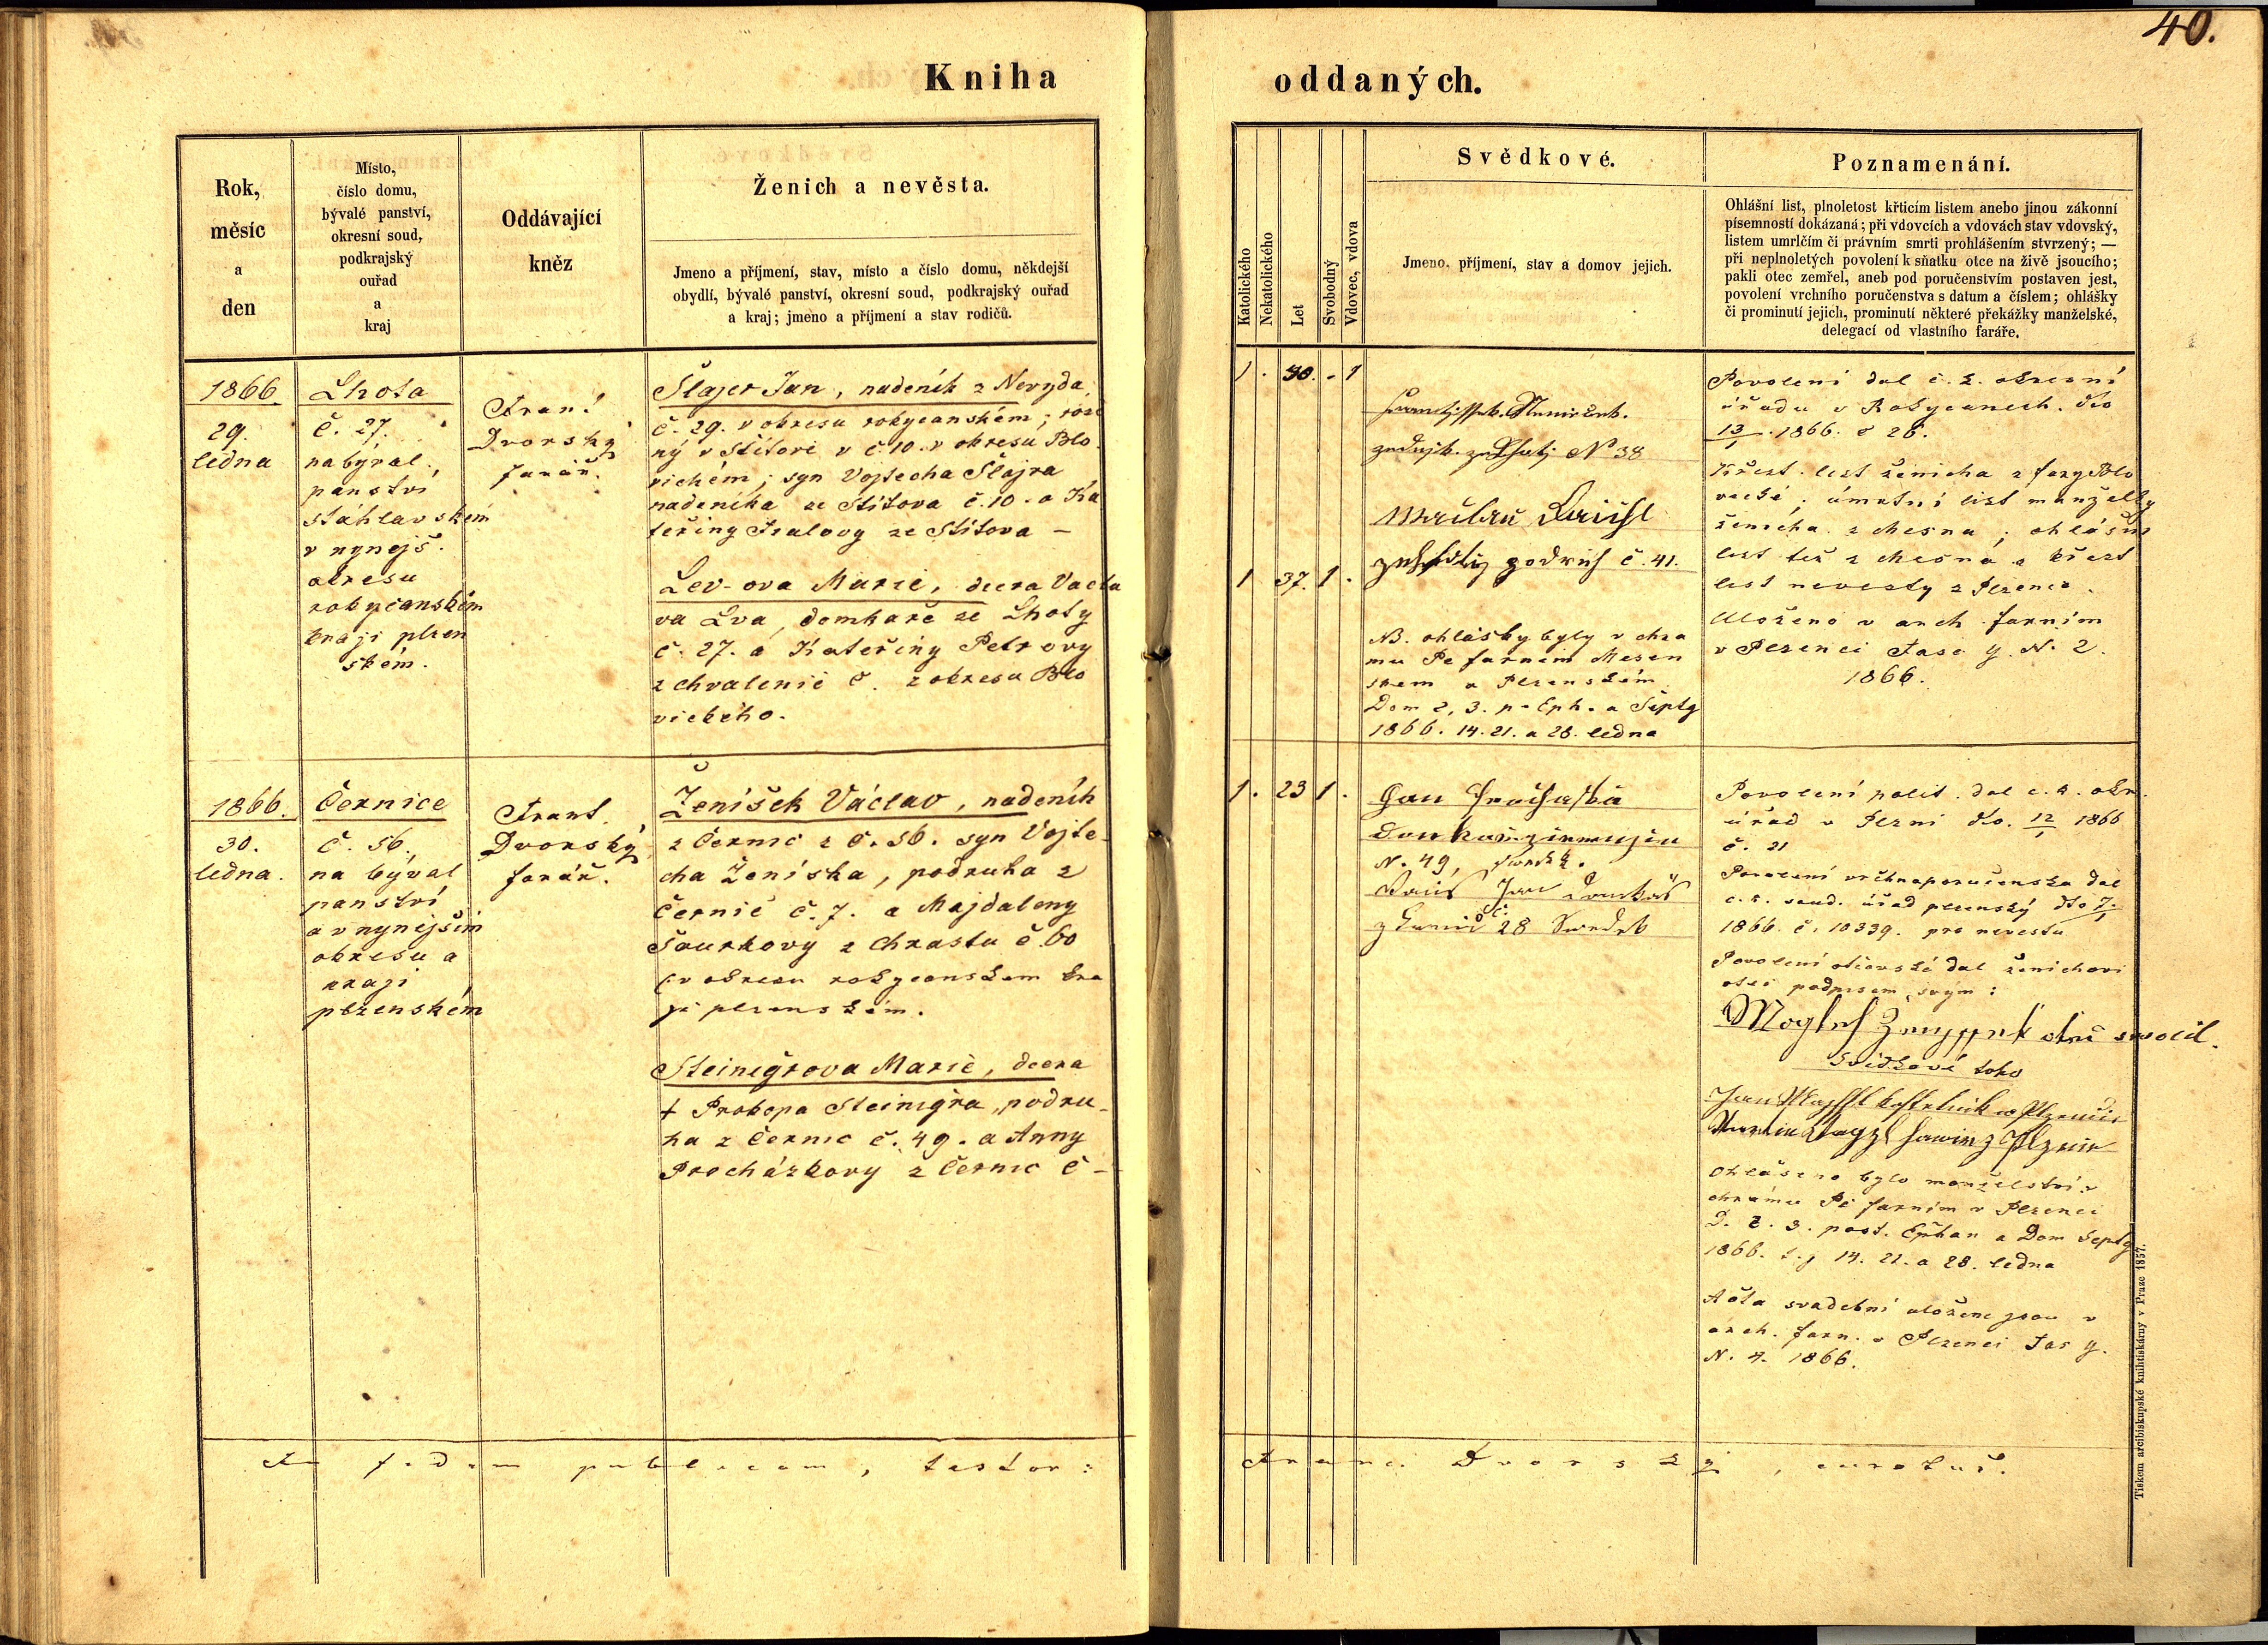 40.
Kniha oddaných.
Rok,
měsíc
a
den
Místo,
číslo domu,
bývalé panství,
okresní soud,
podkrajský
ouřad
a
kraj
Oddávající
kněz
Ženich a nevěsta.
Jmeno a příjmení, stav, místo a číslo domu, někdejší
obydlí, bývalé panství, okresní soud, podkrajský ouřad
a kraj; jmeno a příjmení a stav rodičů.
Katolického
Nekatolického
Let
Svobodný
Vdovec, vdova
Svědkové.
Jmeno, příjmení, stav a domov jejich.
Poznamenání.
Ohlášní list, plnoletost křticím listem anebo jinou zákonní
písemností dokázaná; při vdovcích a vdovách stav vdovský,
listem umrlčím či právním smrti prohlášením stvrzený; —
při neplnoletých povolení k sňatku otce na živě jsoucího;
pakli otec zemřel, aneb pod poručenstvím postaven jest,
povolení vrchního poručenstva s datum a číslem; ohlášky
či prominutí jejich, prominutí některé překážky manželské,
delegací od vlastního faráře.
1866
29.
ledna
Lhota
č. 27.
na býval.
panství
stáhlavském
v nynejš.
okresu
rokycanském
kraji plzen
ském.
Fran.
Dvorský
farář.
Šlajer Jan, nadeník z Nevyda
č. 29. v okresu rokycanském; roze
ný v Štítově v č. 10. v okresu Blo
vickém; syn Vojtecha Šlajra
nadeníka ze Štítova č. 10. a Ka
teřiny ze Štítova —
Lev-ova Marie, dcera Vacla
va Lva, domkaře ze Lhoty
č. 27. a Kateřiny Petrovy
z Chvalenic č. z okresu Blo
vického.
1 . 40. - 1
No 38
1 37. 1 .
č. 41.
NB. ohlášky byly v chra
mu Pe farním Mesen
skem a Plzenském
Dom 2, 3. p. Eph. a Septg
1866. 14. 21. a 28. ledna
Povolení dal c. k. okresní
úřadu v Rokycanech. dto
13/1 1866. č 26.
Křest. list ženicha z fary Blo
vecké; úmrtní list manželky
ženicha z Mesna; ohlášní
list též z Mesna a křest
list nevesty z Plzence.
Uloženo v arch. farním
v Plzenci Fasc y. N. 2.
1866.
1866.
30.
ledna.
Černice
č. 56.
na býval
panství
a v nynejším
okresu a
kraji
plzenském
Frant.
Dvorský
farář.
Ženíšek Václav, nadeník
z Černic z č. 56. syn Vojte-
cha Ženíska, podruha z
Černic č. 7. a Majdaleny
Šourkovy z Chrastu č. 60
(v okresu rokycanskem kra
ji plzenském.
Steinigrova Marie, dcera
+ Prokopa Steinigra, podru-
ha z Černic č. 49. a Anny
Procházkovy z Černic č -
1. 23 1 .
Jan
N. 49, svedek.
Jan
č. 28
Povolení polit. dal c. k. okr.
úřad v Plzni dto. 12/1 1866
č. 21
Povolení vrchnoporučenska dal
c. k. soud. úřad plzenský dto 7/1
1866. č. 10339. pro nevestu
Povolení otcovské dal ženichovi
otec podpisem svým:
otec svolil.
svědkové toho
Ohlášeno bylo manželství v
chrámu Pe farním v Plzenci
D. 2. 3. post. Ephan a Dom Septg
1866. t. j 14. 21. a 28. ledna
Akta svadební uložene jsou v
arch. farn. v Plzenci Fas y.
N. 4. 1866.
In fidem publicam, testor: Franc. Dvorský, curatus.
Tiskem arcibiskupské knihtiskárny v Praze 1857.